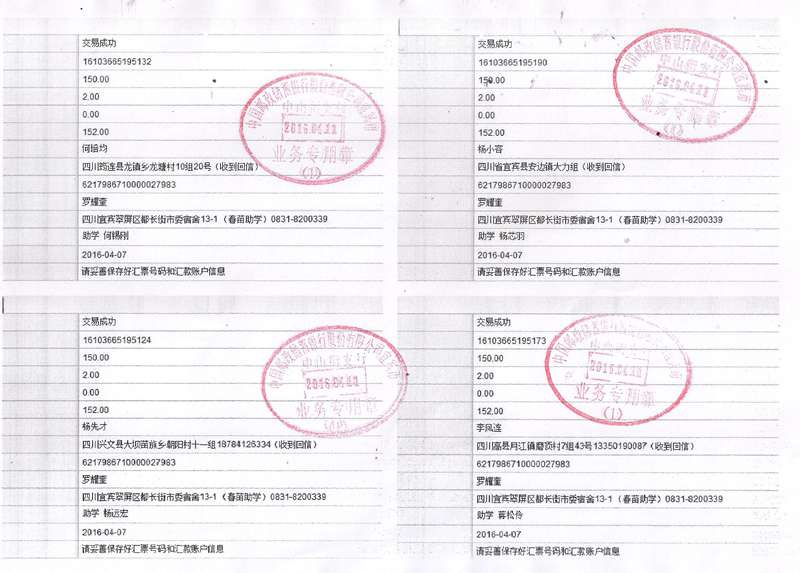 交易成功
16103665195132
150.00
2.00
0.00
152.00
何培均
四川筠连县龙镇乡龙塘村10组20号（收到回信）
6217986710000027983
罗耀奎
四川宜宾翠屏区都长街市委宿舍13-1（春苗助学）0831-8200339
助学 何锡刚
2016-04-07
请妥善保存好汇票号码和汇款账户信息
2016.04.12
业务专用章
(1)
交易成功
16103665195190
150.00
2.00
0.00
152.00
杨小容
四川省宜宾县安边镇大力组（收到回信）
6217986710000027983
罗耀奎
四川宜宾翠屏区都长街市委宿舍13-1（春苗助学）0831-8200339
助学 杨芯羽
2016-04-07
请妥善保存好汇票号码和汇款账户信息
业务专用章
交易成功
16103665195124
150.00
2.00
0.00
152.00
杨先才
四川兴文县大坝苗族乡朝阳村十一组18784126334（收到回信）
6217986710000027983
罗耀奎
四川宜宾翠屏区都长街市委宿舍13-1（春苗助学）0831-8200339
助学 杨远宏
2016-04-07
请妥善保存好汇票号码和汇款账户信息
业务专用章
交易成功
16103665195173
150.00
2.00
0.00
152.00
李凤连
四川高县月江镇磨顶村7组43号13350190087（收到回信）
6217986710000027983
罗耀奎
四川宜宾翠屏区都长街市委宿舍13-1（春苗助学）0831-8200339
助学 蒋松伶
2016-04-07
请妥善保存好汇票号码和汇款账户信息
业务专用章
(1)